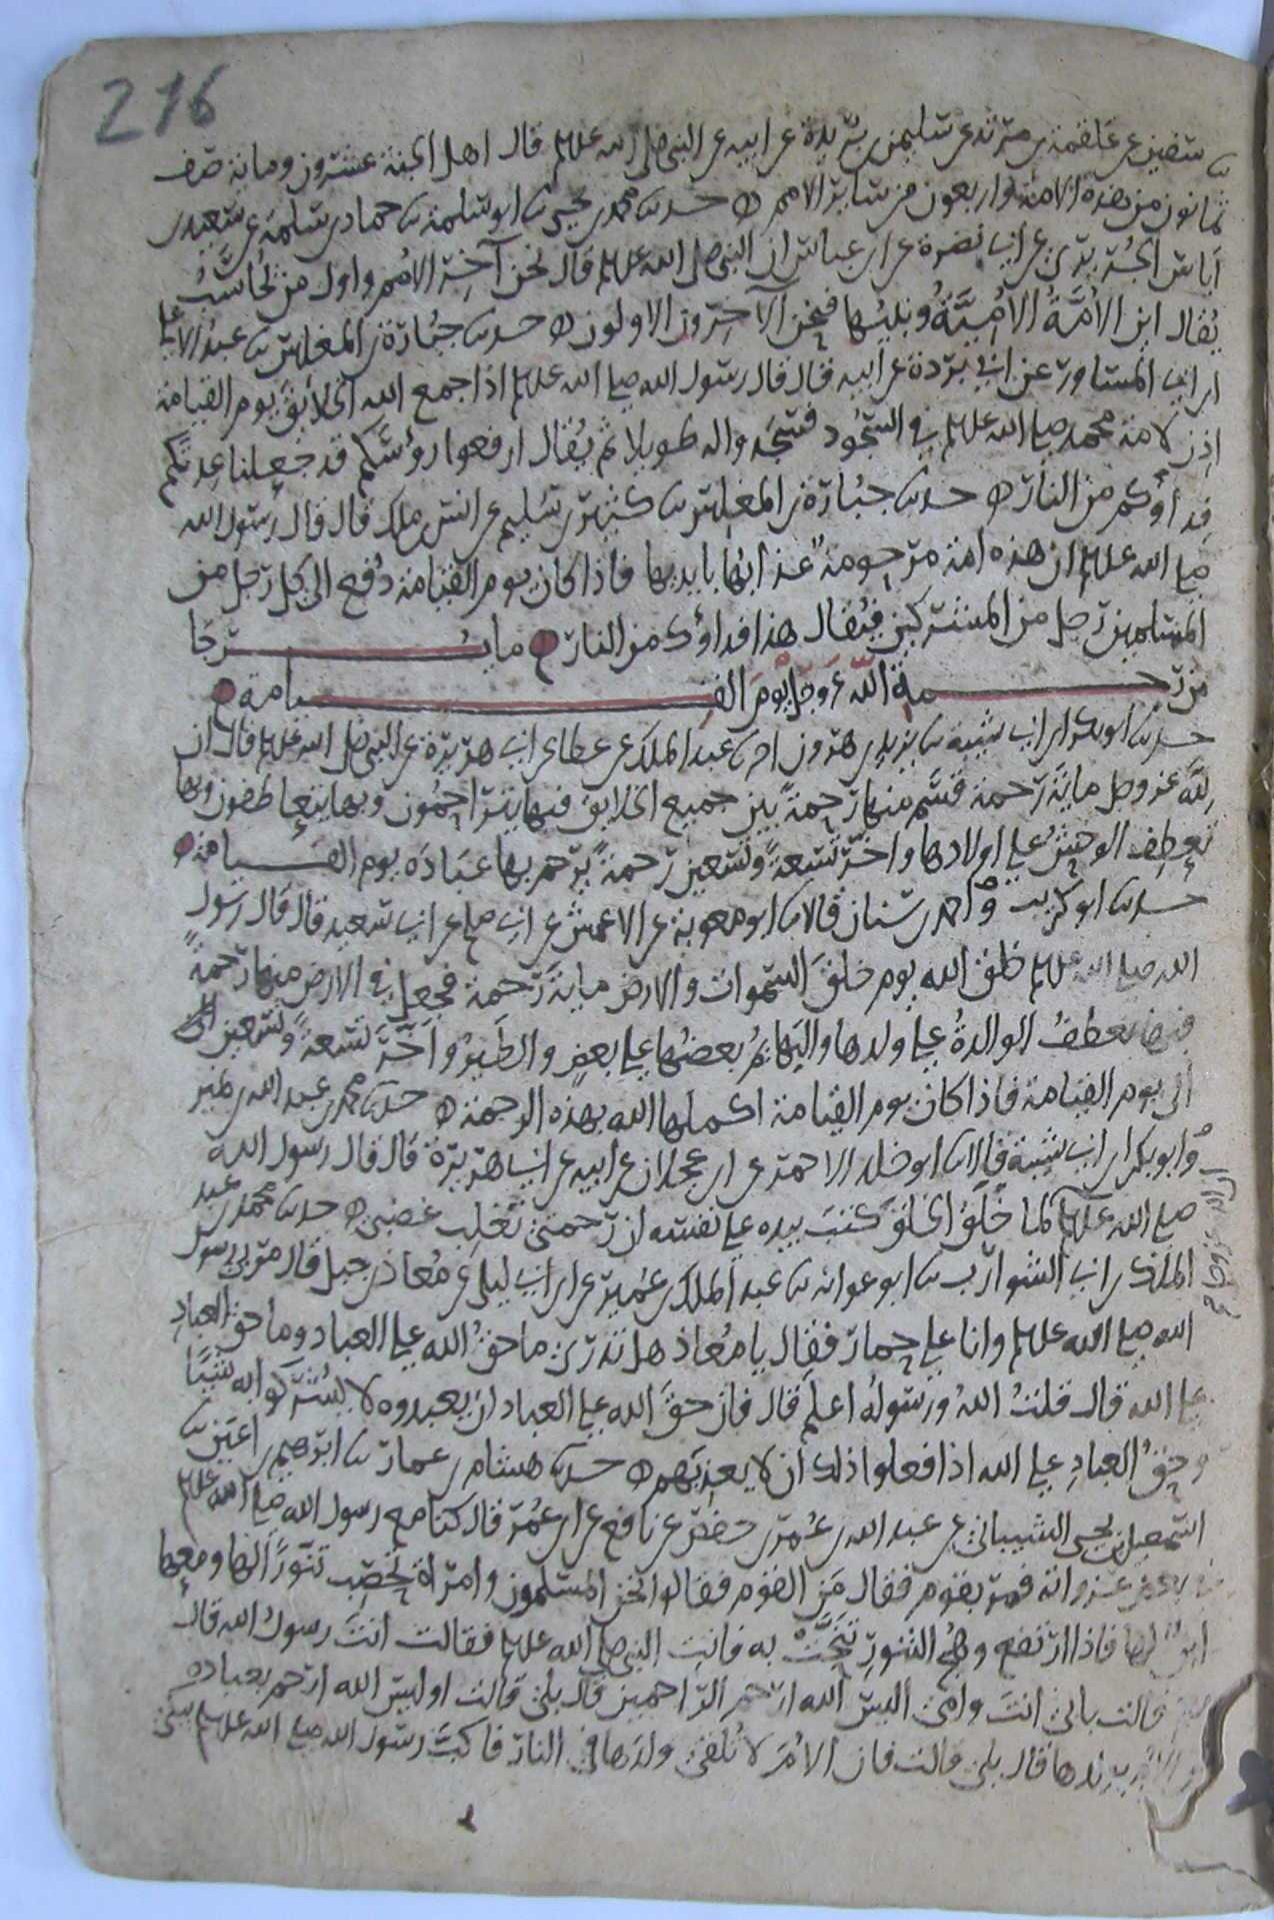 216
ثنا سفين عن علقمة بن مرثد عن سليمن بن بريدة عن ابيه عن النبي صلى الله عليه وسلم قال اهل الجنة عشرون ومائة صف
ثمانون من هذه الامة واربعون من سائر الامم ه حدثنا محمد بن يحيى ثنا ابو سلمة ثنا حماد بن سلمة عن سعيد بن
اياس الجريري عن ابي نضرة عن ابن عباس ان النبي صلى الله عليه وسلم قال نحن آخر الامم واول من يُحاسَبُ
يُقال اين الاُمَّةُ الاُمِّيَّةُ ونبيُّها فنحن الآخرون الاولون ه حدثنا جُبارة بن المغلس ثنا عبد الاعلى
ابن ابي المساور عن ابي بردة عن ابيه قال قال رسول الله صلى الله عليه وسلم اذا جمع الله الخلائق يوم القيامة
اذن لامة محمد صلى الله عليه وسلم في السجود فسجدوا له طويلا ثم يُقال ارفعوا رؤسكم قد جعلنا عدتكم
فداؤكم من النار ه حدثنا جُبارة بن المغلس ثنا كثير بن سليم عن انس بن ملك قال قال رسول الله
صلى الله عليه وسلم ان هذه امة مرحومة عذابها بايديها فاذا كان يوم القيامة دُفع الى كل رجل من
المسلمين رجل من المشركين فيُقال هذا فداؤك من النار ه ما يُرجا
من رحمة الله عز وجل يوم القيامة ه
حدثنا ابو بكر ابن ابي شيبة ثنا يزيد بن هرون انا عبد الملك عن عطا عن ابي هريرة عن النبي صلى الله عليه وسلم قال ان
لله عز وجل مائة رحمة قسّم منها رحمة بين جميع الخلايق فبها يتراحمون وبها يتعاطفون وبها
تعطف الوحش على اولادها واخّر تسعة وتسعين رحمة يرحم بها عباده يوم القيامة ه
حدثنا ابو كريب واحمد بن سنان قالا ثنا ابو معوية عن الاعمش عن ابي صلح عن ابي سعيد قال قال رسول
الله صلى الله عليه وسلم خلق الله يوم خلق السموات والارض مائة رحمة فجعل في الارض منها رحمةً
فبها تعطف الوالدةُ على ولدها والبهائم بعضُها على بعض والطيرُ واخّر تسعةً وتسعين
الى يوم القيامة فاذا كان يوم القيامة اكملها الله بهذه الرحمة ه حدثنا محمد بن عبد الله بن نمير
وابو بكر ابن ابي شيبة قالا ثنا ابو خلد الاحمر عن ابن عجلان عن ابيه عن ابي هريرة قال قال رسول الله
صلى الله عليه وسلم لما خلق الخلق كتب بيده على نفسه ان رحمتي تغلب غضبي ه حدثنا محمد بن عبد
الملك بن ابي الشوارب ثنا ابو عوانه ثنا عبد الملك بن عُمير عن ابن ابي ليلى عن مُعاذ بن جبل قال مرّ بي رسول
الله صلى الله عليه وسلم وانا على حمار فقال يا مُعاذ هل تدري ما حقُ الله على العباد وما حق العباد
على الله قال قلتُ اللهُ ورسولُه اعلم قال فان حقَ الله على العباد ان يعبدوه لا يشركوا به شيئًا
وحقُ العبادِ على الله اذا فعلوا ذلك ان لا يعذبهم ه حدثنا هشام بن عمار ثنا ابرهيم بن اعين ثنا
اسمعيل بن يحيى الشيباني عن عبد الله بن عُمر بن حفص عن نافع عن ابن عُمر قال كنا مع رسول الله صلى الله عليه وسلم
في بعض غزواته فمرّ بقوم فقال مَن القوم فقالوا نحن المسلمون وامراة تحصب تنّورًا لها ومعها
ابنٌ لها فاذا ارتفع وهج التنور تنحّت به فاتت النبي صلى الله عليه وسلم فقالت انتَ رسولُ الله قال
نعم قالت بابي انتَ وامي اليس الله ارحم الراحمين قال بلى قالت اوليس الله ارحم بعباده
من الام بولدها قال بلى قالت فان الاُمَّ لا تُلقي ولدَها في النار فاكبّ رسول الله صلى الله عليه وسلم يبكي